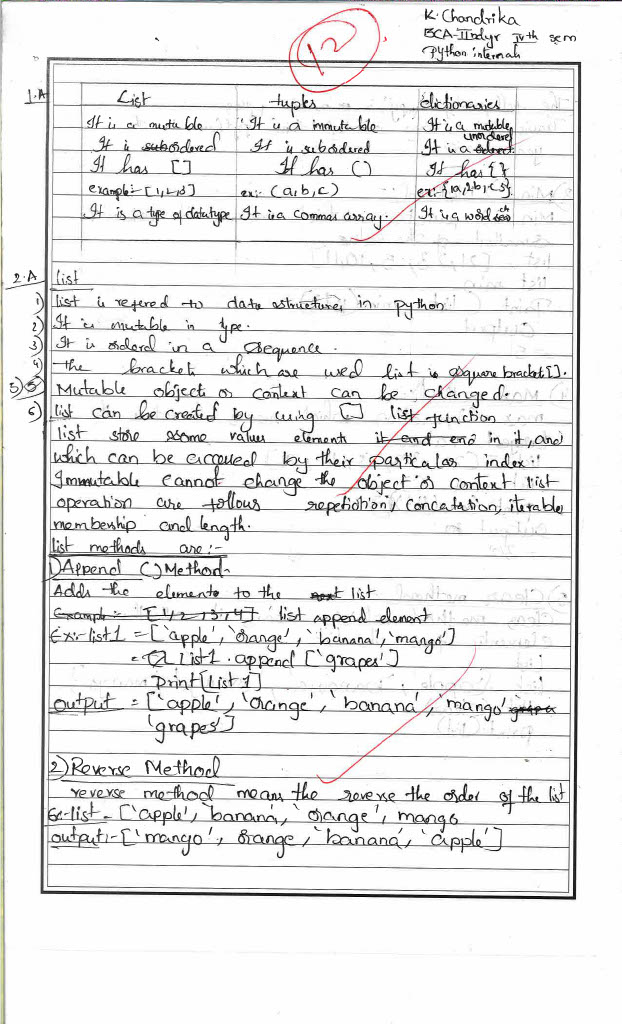 K. Chandrika
BCA-IIndyr IVth sem
Python internals
12
1.A
List tuples dictionaries
It is a mutable It is a immutable It is a mutable
It is subordered It is subordered It is a unordered
It has [] It has () It has {}
example:- [1,2,3] ex:- (a,b,c) ex:- {1a,2b,c3}
It is a type of datatype It is a commas array. It is a word
2.A list
1) list is refered to data structures in python
2) It is mutable in type.
3) It is orderd in a sequence.
4) the brackets which are used list is square bracket [].
5) Mutable object or context can be changed.
6) list can be created by using [] list function
list store some values elements it end end in it, and
which can be accessed by their particular index:-
Immutable cannot change the object or context list
operation are follows repetiotion, concatation, iterable,
membership and length.
list methods are:-
1) Append () Method-
Adds the elements to the next list
Example:- [1,2,3,4] list append element
Ex:- list1 = ['apple', 'orange', 'banana', 'mango']
= list1.append ['grapes']
print[List 1]
output = ['apple', 'orange', 'banana', 'mango' grape
'grapes']
2) Reverse Method
reverse method means the reverse the order of the list
Ex-list - ['apple', 'banana', 'orange', mango
output:- ['mango', orange, 'banana', 'apple']